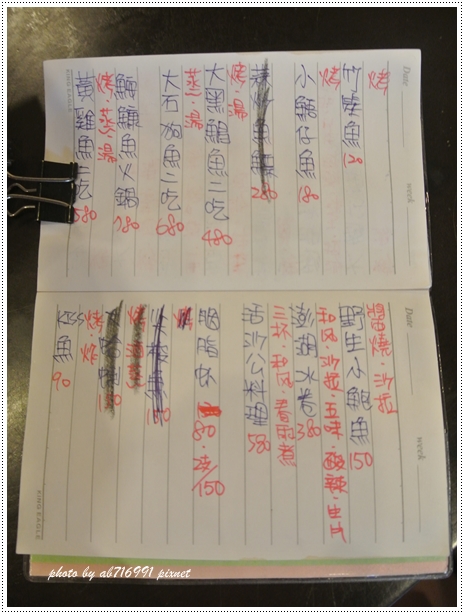 Date
week
烤
竹筴魚 120
烤
小鰭仔魚 180
280
烤.湯
大黑鯧魚二吃 480
蒸.湯
大石狗魚二吃 680
鱸鰻魚火鍋 780
烤.蒸.湯
黃雞魚二吃 580
KING EAGLE
Date
week
醬燒.沙拉
野生小鮑魚 150
和风.沙拉.五味.酸辣.生片
澎湖水卷 380
三杯.和风
活沙公料理 580
胭脂蝦 80.2支/150
烤
烤
烤 炸
KISS魚 90
KING EAGLE
photo by ab716991 pixnet